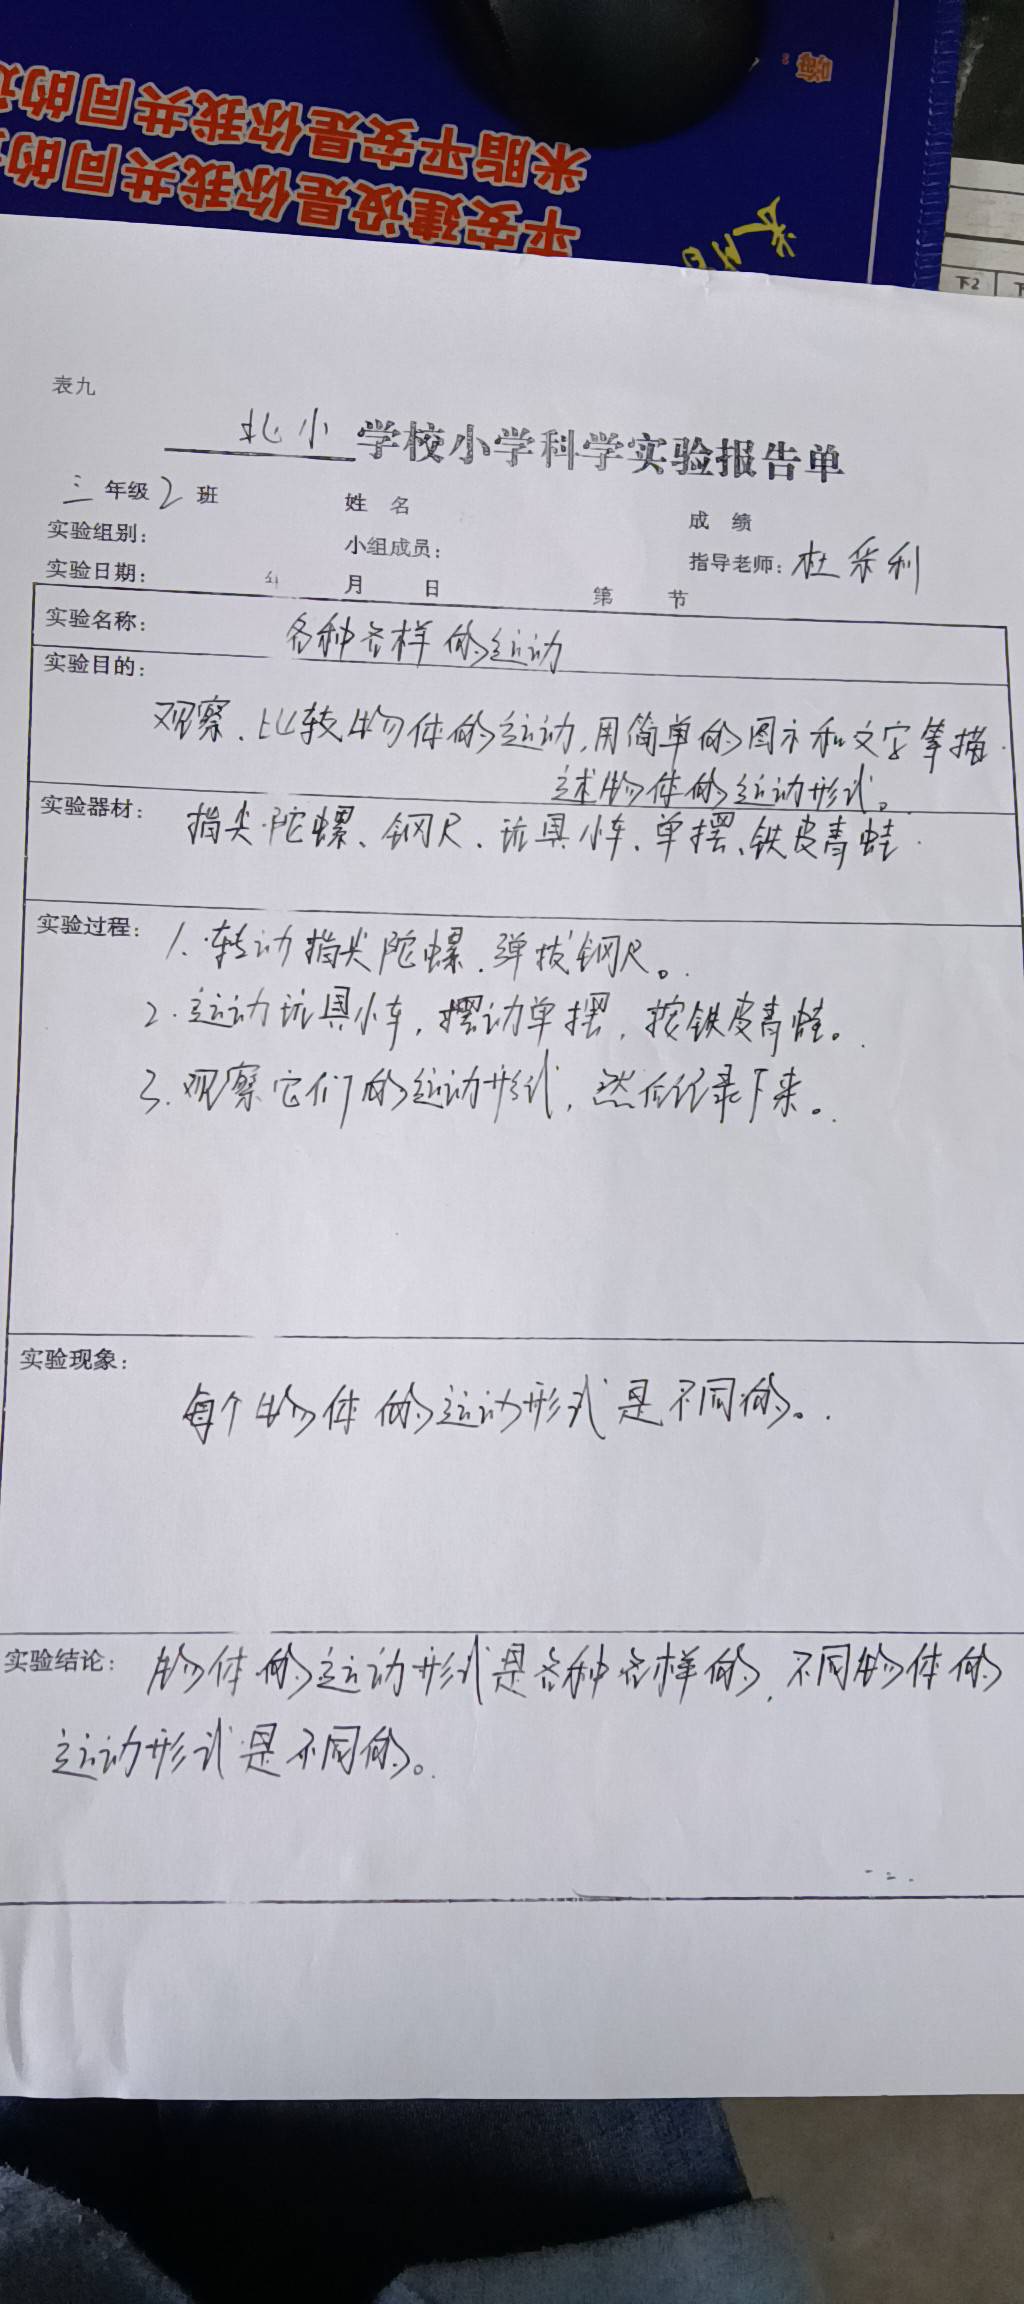 嗨。
米脂平安是你我共同的
平安建设是你我共同的
下2
表九
北小学校小学科学实验报告单
三年级2班 姓 名 成 绩
实验组别: 小组成员: 指导老师:杜乐利
实验日期: 年 月 日 第 节
实验名称: 各种各样的运动
实验目的:
观察、比较物体的运动,用简单的图示和文字等描
述物体的运动形式。
实验器材: 指尖陀螺、钢尺、玩具小车、单摆、铁皮青蛙
实验过程: 1.转动指尖陀螺、弹拨钢尺。
2.运动玩具小车,摆动单摆,按铁皮青蛙。
3.观察它们的运动形式,然后记录下来。
实验现象:
每个物体的运动形式是不同的。
实验结论: 物体的运动形式是各种各样的,不同物体的
运动形式是不同的。